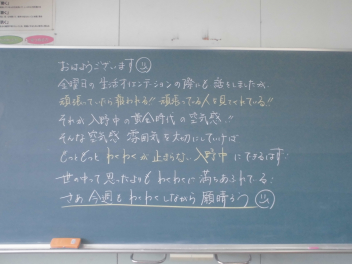 おはようございます
金曜日の生活オリエンテーションの際にも話をしましたが、
頑張っていたら報われる!! 頑張っている人を見てくれている!!
それが入野中の黄金時代の空気感!!
そんな空気感 雰囲気を大切にしていけば
もっともっと わくわくが止まらない入野中にできるはず!
世の中って思ったよりもわくわくに満ちあふれてる!
さあ 今週もわくわくしながら 顔晴ろう